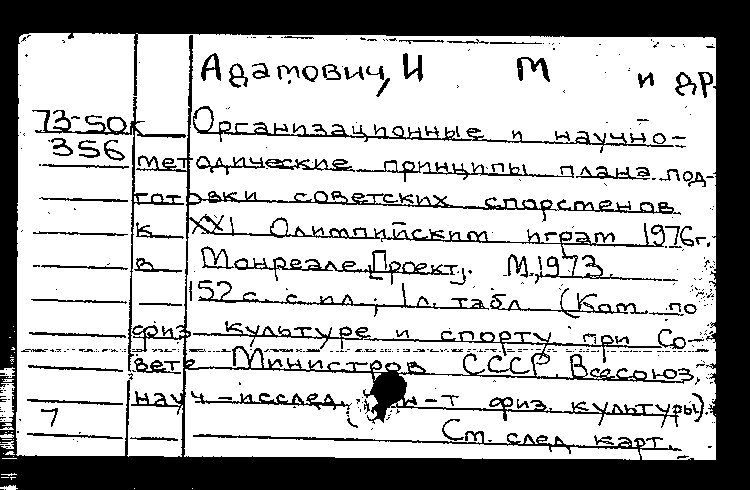 Адамович, И М и др.
73-50к Организационные и научно-
356 методические принципы плана под-
готовки советских спортсменов
к XXI Олимпийским играм 1976г.
в Монреале. [Проект]. М., 1973.
152 с. с ил.; 1 л. табл (Ком. по
физ культуре и спорту при Со-
вете Министров СССР. Всесоюз.
науч-исслед. ин-т физ. культуры)
7 См. след карт.